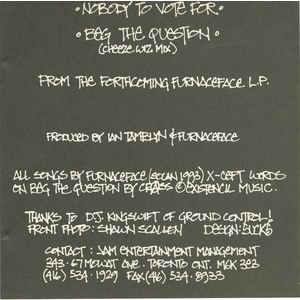 • NOBODY TO VOTE FOR •
• BEG THE QUESTION •
(CHEEZE WIZ MIX)
FROM THE FORTHCOMING FURNACEFACE L.P.
PRODUCED BY IAN TAMBLYN & FURNACEFACE
ALL SONGS BY FURNACEFACE (SOCAN 1993) X-CEPT WORDS
ON BEG THE QUESTION BY CRASS © EXISTENCIL MUSIC.
THANKS TO D.J. KINGSWIFT OF GROUND CONTROL!
FRONT PHOTO: SHAWN SCALLEN DESIGN:
CONTACT: JAM ENTERTAINMENT MANAGEMENT
343-67 MOWAT AVE. TORONTO ONT. M6K 3E3
(416) 534-1929 FAX (416) 534-8933